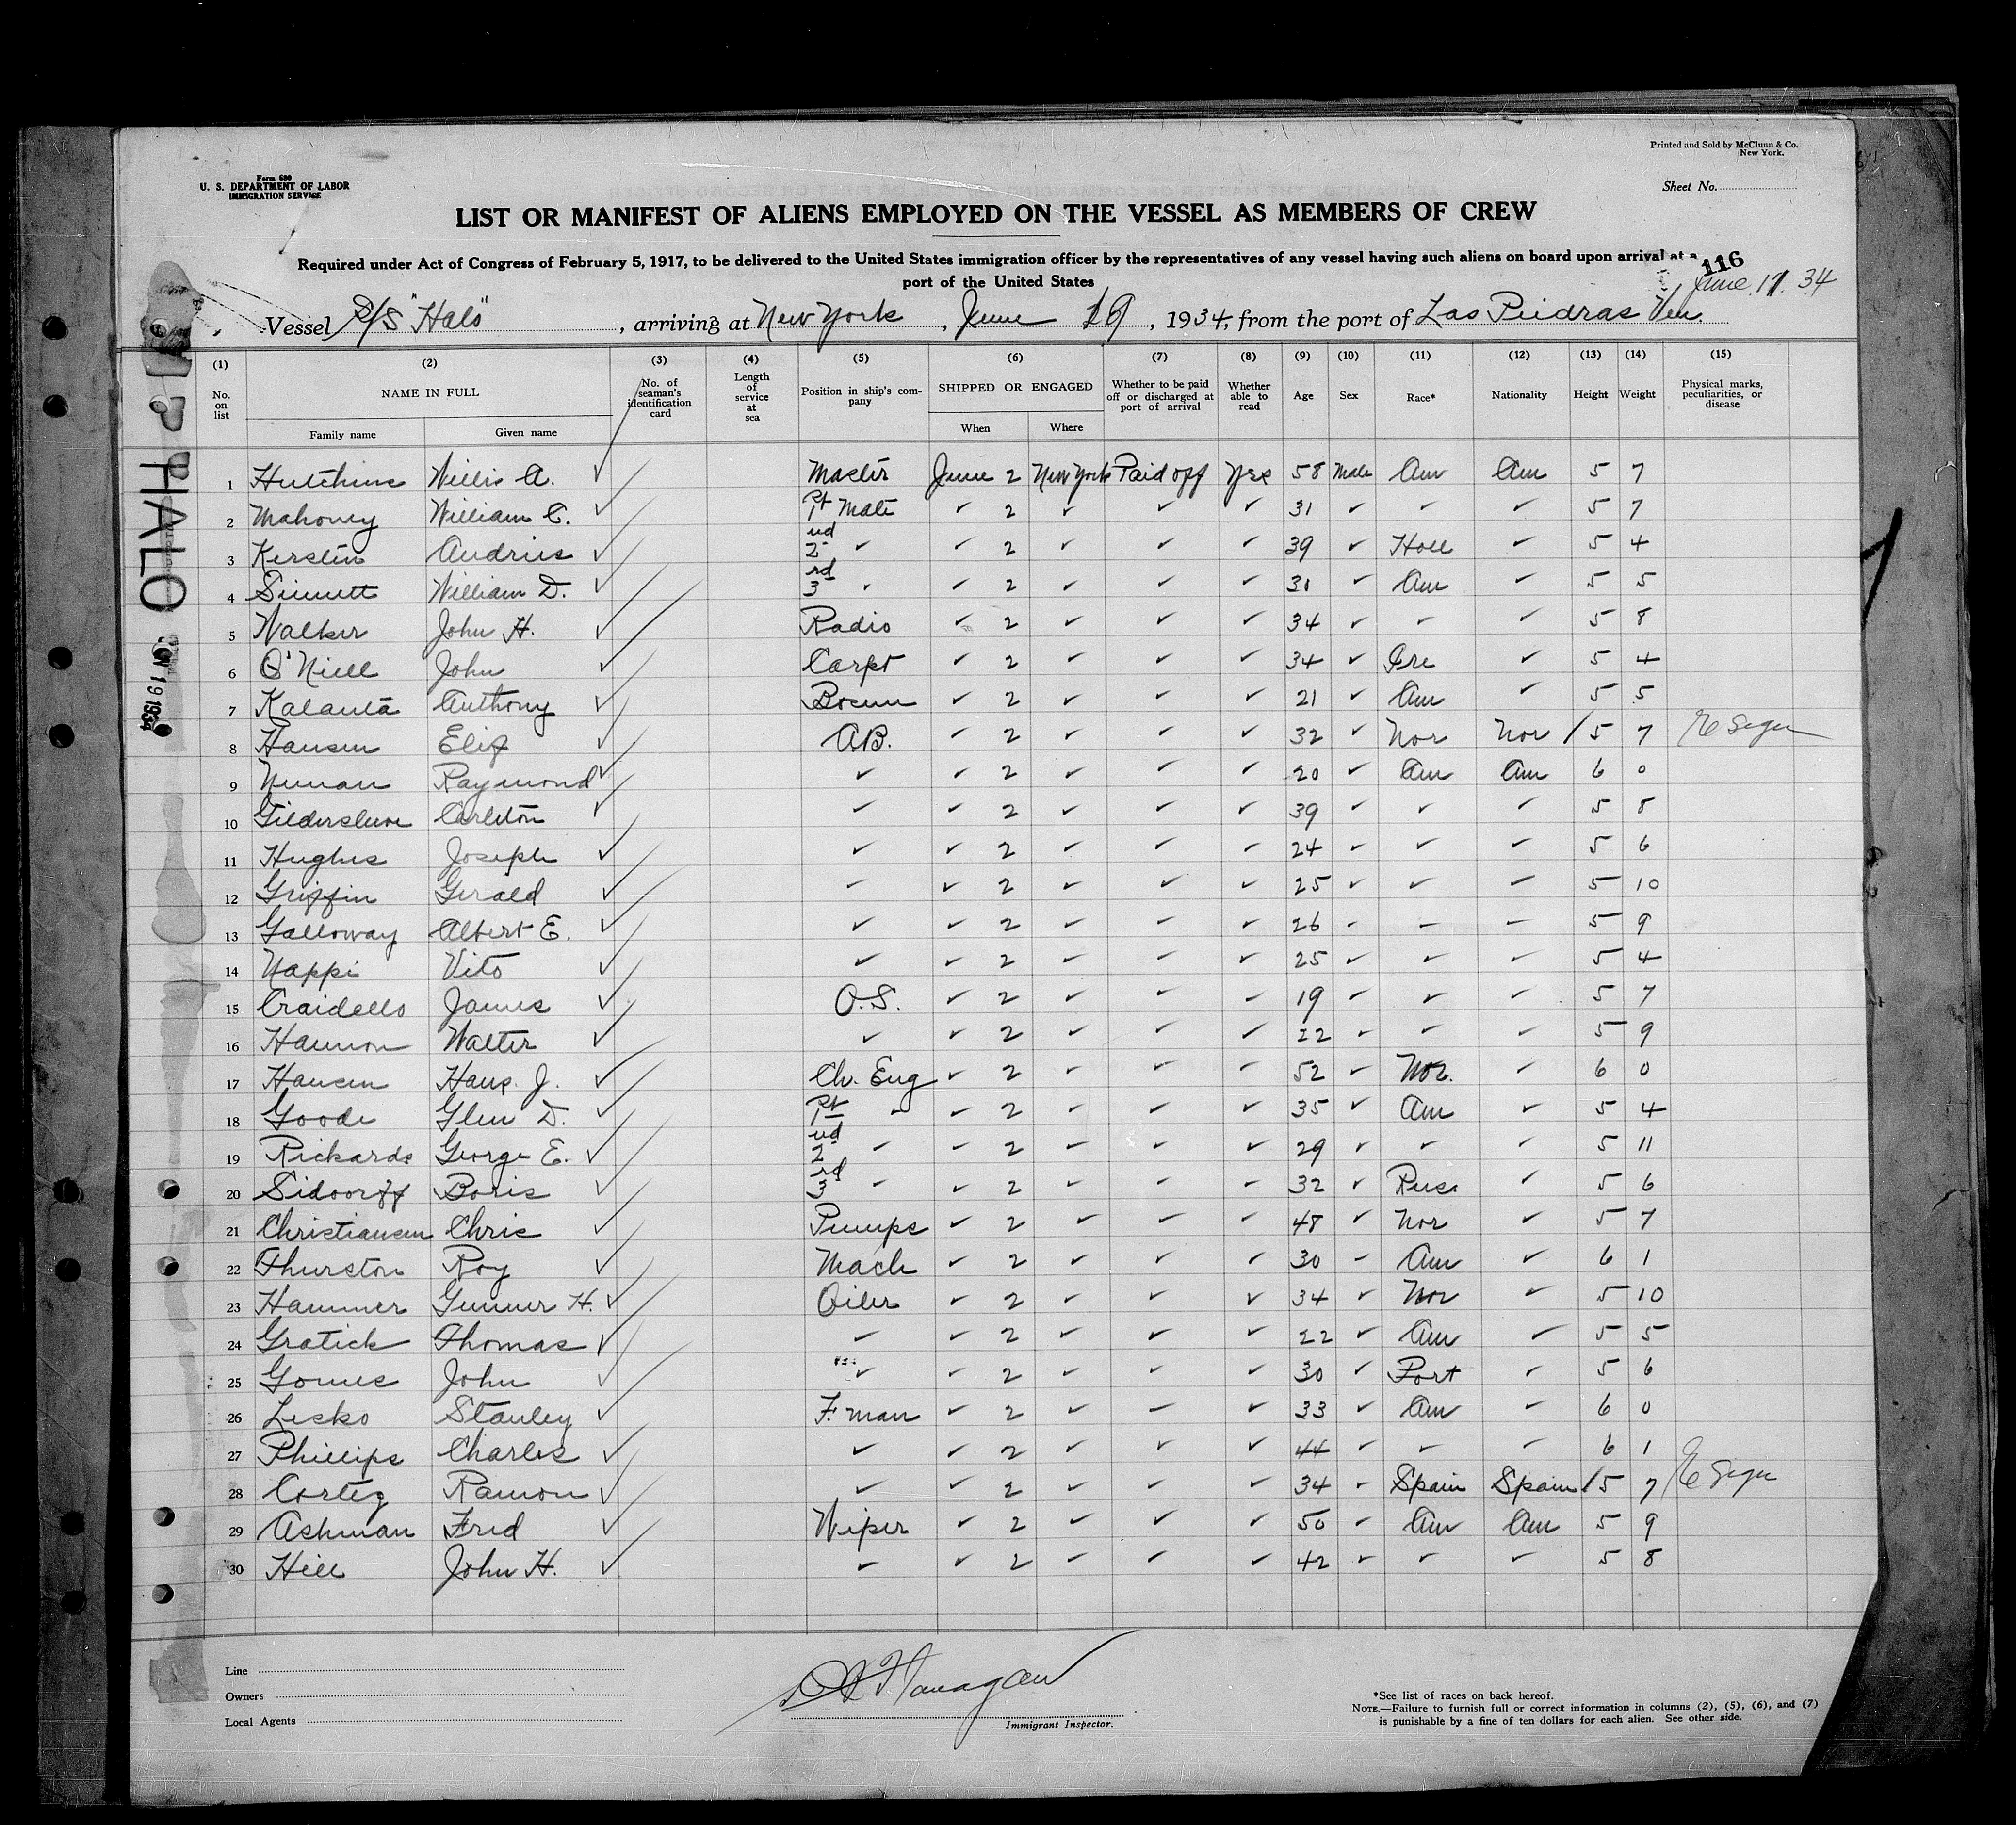 Printed and Sold by McClunn & Co.
New York.
Form 680
U. S. DEPARTMENT OF LABOR
IMMIGRATION SERVICE
Sheet No.
LIST OR MANIFEST OF ALIENS EMPLOYED ON THE VESSEL AS MEMBERS OF CREW
Required under Act of Congress of February 5, 1917, to be delivered to the United States immigration officer by the representatives of any vessel having such aliens on board upon arrival at a
port of the United States
116
June 17. 34
Vessel S/S "Halo", arriving at New York, June 19, 1934, from the port of Las Piedras Ven.
(1) (2) (3) (4) (5) (6) (7) (8) (9) (10) (11) (12) (13) (14) (15)
No. on list NAME IN FULL No. of seaman's identification card Length of service at sea Position in ship's company SHIPPED OR ENGAGED Whether to be paid off or discharged at port of arrival Whether able to read Age Sex Race* Nationality Height Weight Physical marks, peculiarities, or disease
Family name Given name When Where
1 Hutchins Willis A. ✓ Master June 2 New York Paid off Yes 58 Male Am Am 5 7
2 Mahoney William C. ✓ 1st Mate ✓ 2 ✓ ✓ ✓ 31 ✓ ✓ ✓ 5 7
3 Kerstin Andries ✓ 2nd ✓ ✓ 2 ✓ ✓ ✓ 39 ✓ Holl ✓ 5 4
4 Sinnett William D. ✓ 3rd ✓ ✓ 2 ✓ ✓ ✓ 31 ✓ Am ✓ 5 5
5 Walker John H. ✓ Radio ✓ 2 ✓ ✓ ✓ 34 ✓ ✓ ✓ 5 8
6 O'Niell John ✓ Carpt ✓ 2 ✓ ✓ ✓ 34 ✓ Ire ✓ 5 4
7 Kalanta Anthony ✓ Bosun ✓ 2 ✓ ✓ ✓ 21 ✓ Am ✓ 5 5
8 Hansen Elif ✓ A.B. ✓ 2 ✓ ✓ ✓ 32 ✓ Nor Nor / 5 7
9 Neuman Raymond ✓ ✓ ✓ 2 ✓ ✓ ✓ 20 ✓ Am Am 6 0
10 Gildersleeve Carleton ✓ ✓ ✓ 2 ✓ ✓ ✓ 39 ✓ ✓ ✓ 5 8
11 Hughes Joseph ✓ ✓ ✓ 2 ✓ ✓ ✓ 24 ✓ ✓ ✓ 5 6
12 Griffin Gerald ✓ ✓ ✓ 2 ✓ ✓ ✓ 25 ✓ ✓ ✓ 5 10
13 Galloway Albert E. ✓ ✓ ✓ 2 ✓ ✓ ✓ 26 ✓ ✓ ✓ 5 9
14 Nappi Vito ✓ ✓ ✓ 2 ✓ ✓ ✓ 25 ✓ ✓ ✓ 5 4
15 Craidello James ✓ O.S. ✓ 2 ✓ ✓ ✓ 19 ✓ ✓ ✓ 5 7
16 Hannon Walter ✓ ✓ ✓ 2 ✓ ✓ ✓ 22 ✓ ✓ ✓ 5 9
17 Hansen Hans J. ✓ Ch. Eng ✓ 2 ✓ ✓ ✓ 52 ✓ Nor. ✓ 6 0
18 Goode Glen D. ✓ 1st ✓ ✓ 2 ✓ ✓ ✓ 35 ✓ Am ✓ 5 4
19 Rickards George E. ✓ 2nd ✓ ✓ 2 ✓ ✓ ✓ 29 ✓ ✓ ✓ 5 11
20 Sidooroff Boris ✓ 3rd ✓ ✓ 2 ✓ ✓ ✓ 32 ✓ Russ ✓ 5 6
21 Christiansen Chris ✓ Pumps ✓ 2 ✓ ✓ ✓ 48 ✓ Nor ✓ 5 7
22 Thurston Roy ✓ Mach ✓ 2 ✓ ✓ ✓ 30 ✓ Am ✓ 6 1
23 Hammer Gunner H. ✓ Oiler ✓ 2 ✓ ✓ ✓ 34 ✓ Nor ✓ 5 10
24 Gratick Thomas ✓ ✓ ✓ 2 ✓ ✓ ✓ 22 ✓ Am ✓ 5 5
25 Gomes John ✓ ✓ ✓ 2 ✓ ✓ ✓ 30 ✓ Port ✓ 5 6
26 Lesko Stanley ✓ F.man ✓ 2 ✓ ✓ ✓ 33 ✓ Am ✓ 6 0
27 Phillips Charles ✓ ✓ ✓ 2 ✓ ✓ ✓ 44 ✓ ✓ ✓ 6 1
28 Cortez Ramon ✓ ✓ ✓ 2 ✓ ✓ ✓ 34 ✓ Spain Spain / 5 7
29 Ashman Fred ✓ Wiper ✓ 2 ✓ ✓ ✓ 50 ✓ Am Am 5 9
30 Hill John H. ✓ ✓ ✓ 2 ✓ ✓ ✓ 42 ✓ ✓ ✓ 5 8
HALO
19 1934
Line
Owners
Local Agents
Immigrant Inspector.
*See list of races on back hereof.
NOTE.—Failure to furnish full or correct information in columns (2), (5), (6), and (7)
is punishable by a fine of ten dollars for each alien. See other side.